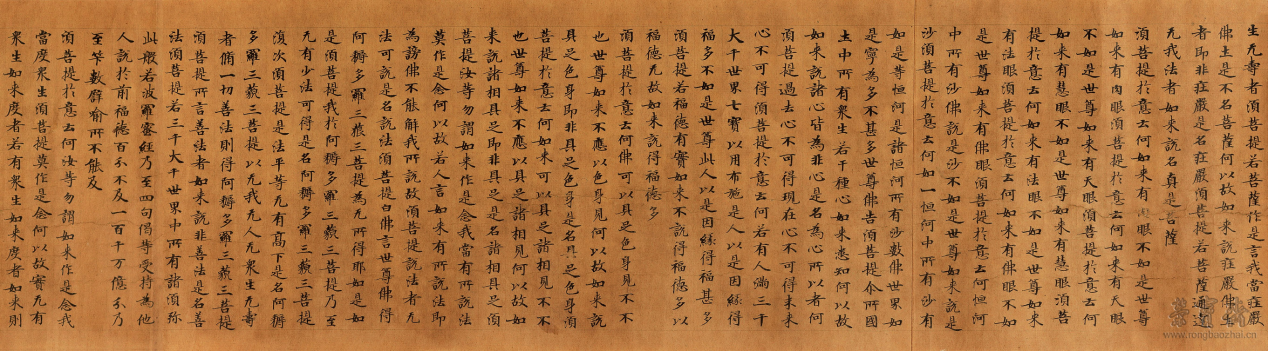 生无壽者須菩提若菩薩作是言我當莊嚴
佛土是不名菩薩何以故如來說莊嚴佛土
者即非莊嚴是名莊嚴須菩提若菩薩通達
无我法者如來說名真是菩薩
須菩提於意云何如來有肉眼不如是世尊
如來有肉眼須菩提於意云何如來有天眼
不如是世尊如來有天眼須菩提於意云何
如來有慧眼不如是世尊如來有慧眼須菩
提於意云何如來有法眼不如是世尊如來
有法眼須菩提於意云何如來有佛眼不如
是世尊如來有佛眼須菩提於意云何恒河
中所有沙佛說是沙不如是世尊如來說是
沙須菩提於意云何如一恒河中所有沙有
如是等恒河是諸恒河所有沙數佛世界如
是寧為多不甚多世尊佛告須菩提尒所國
土中所有眾生若干種心如來悉知何以故
如來說諸心皆為非心是名為心所以者何
須菩提過去心不可得現在心不可得未來
心不可得須菩提於意云何若有人滿三千
大千世界七寶以用布施是人以是因緣得
福多不如是世尊此人以是因緣得福甚多
須菩提若福德有實如來不說得福德多以
福德无故如來說得福德多
須菩提於意云何佛可以具足色身見不不
也世尊如來不應以色身見何以故如來說
具足色身即非具足色身是名具足色身須
菩提於意云何如來可以具足諸相見不不
也世尊如來不應以具足諸相見何以故如
來說諸相具足即非具足是名諸相具足須
菩提汝等勿謂如來作是念我當有所說法
莫作是念何以故若人言如來有所說法即
為謗佛不能解我所說故須菩提說法者无
法可說是名說法須菩提白佛言世尊佛得
阿耨多羅三藐三菩提為无所得耶如是如
是須菩提我於阿耨多羅三藐三菩提乃至
无有少法可得是名阿耨多羅三藐三菩提
復次須菩提是法平等无有高下是名阿耨
多羅三藐三菩提以无我无人无眾生无壽
者脩一切善法則得阿耨多羅三藐三菩提
須菩提所言善法者如來說非善法是名善
法須菩提若三千大千世界中所有諸須弥
此般若波羅蜜經乃至四句偈等受持為他
人說於前福德百分不及一百千万億分乃
至筭數譬喻所不能及
須菩提於意云何汝等勿謂如來作是念我
當度眾生須菩提莫作是念何以故實无有
眾生如來度者若有眾生如來度者如來則
榮寶齋
www.rongbaozhai.cn